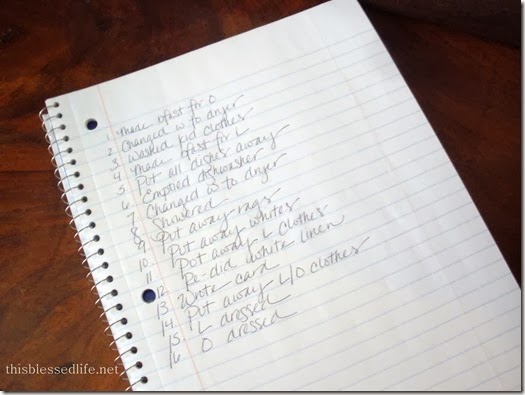 1. Made bfast for O
2. Changed w to dryer
3. Washed kid clothes
4. Made bfast for L
5. Put all dishes away
6. Emptied dishwasher
7. Changed w to dryer
8. Showered
9. Put away rags
10. Put away whites
11. Put away L clothes
12. Re-did white linen
13. Wrote card
14. Put away L/O clothes
15. L dressed
16. O dressed
thisblessedlife.net